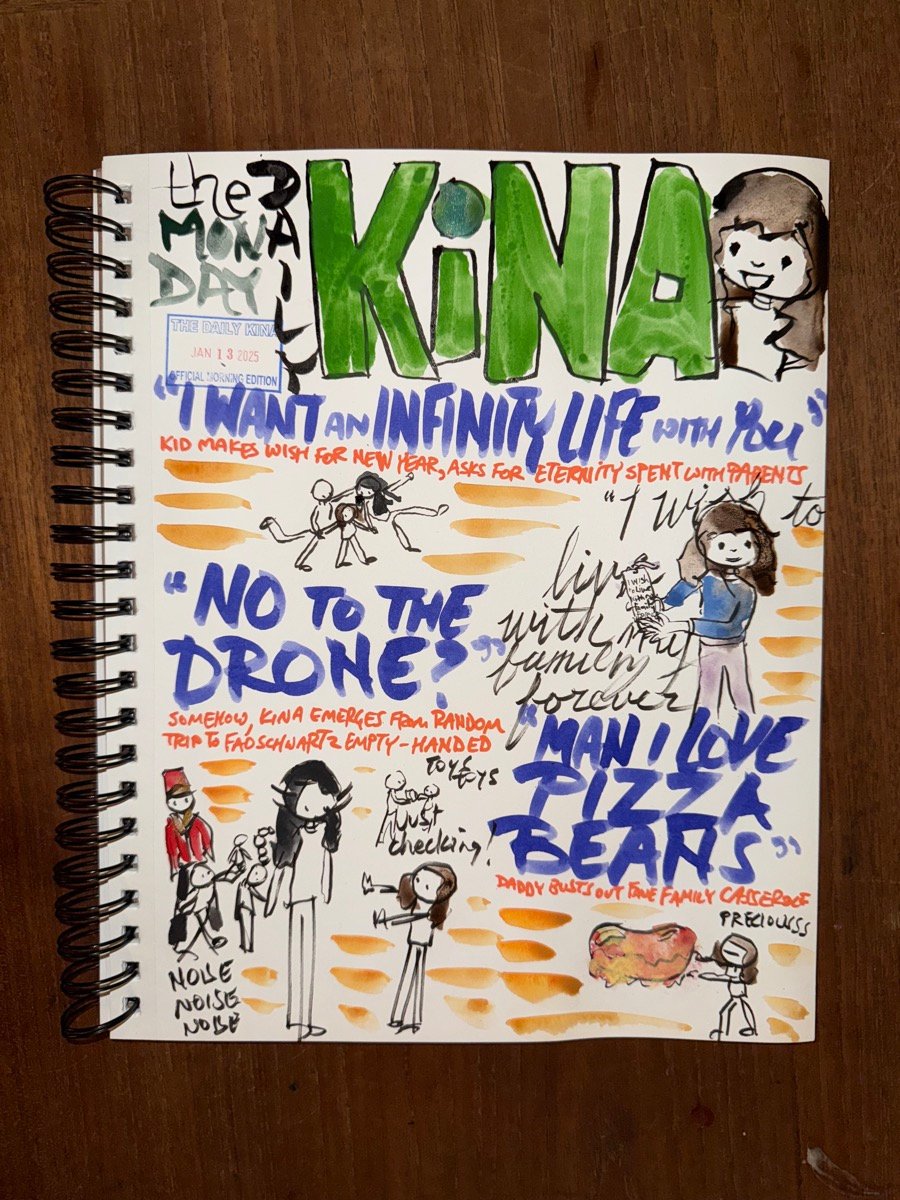 the
DAILY
MON
DAY
KiNA
THE DAILY KINA
JAN 13 2025
OFFICIAL MORNING EDITION
"I WANT AN INFINITY LIFE WITH YOU"
KID MAKES WISH FOR NEW YEAR, ASKS FOR ETERNITY SPENT WITH PARENTS
"I wish to
live
with my
family
forever
"NO TO THE
DRONE?"
SOMEHOW, KINA EMERGES FROM RANDOM
TRIP TO FAO SCHWARTZ EMPTY-HANDED
toys
toys
just
checking!
NOISE
NOISE
NOISE
"MAN I LOVE
PIZZA
BEANS"
DADDY BUSTS OUT FAMILY CASSEROLE
PRECIOUSSS